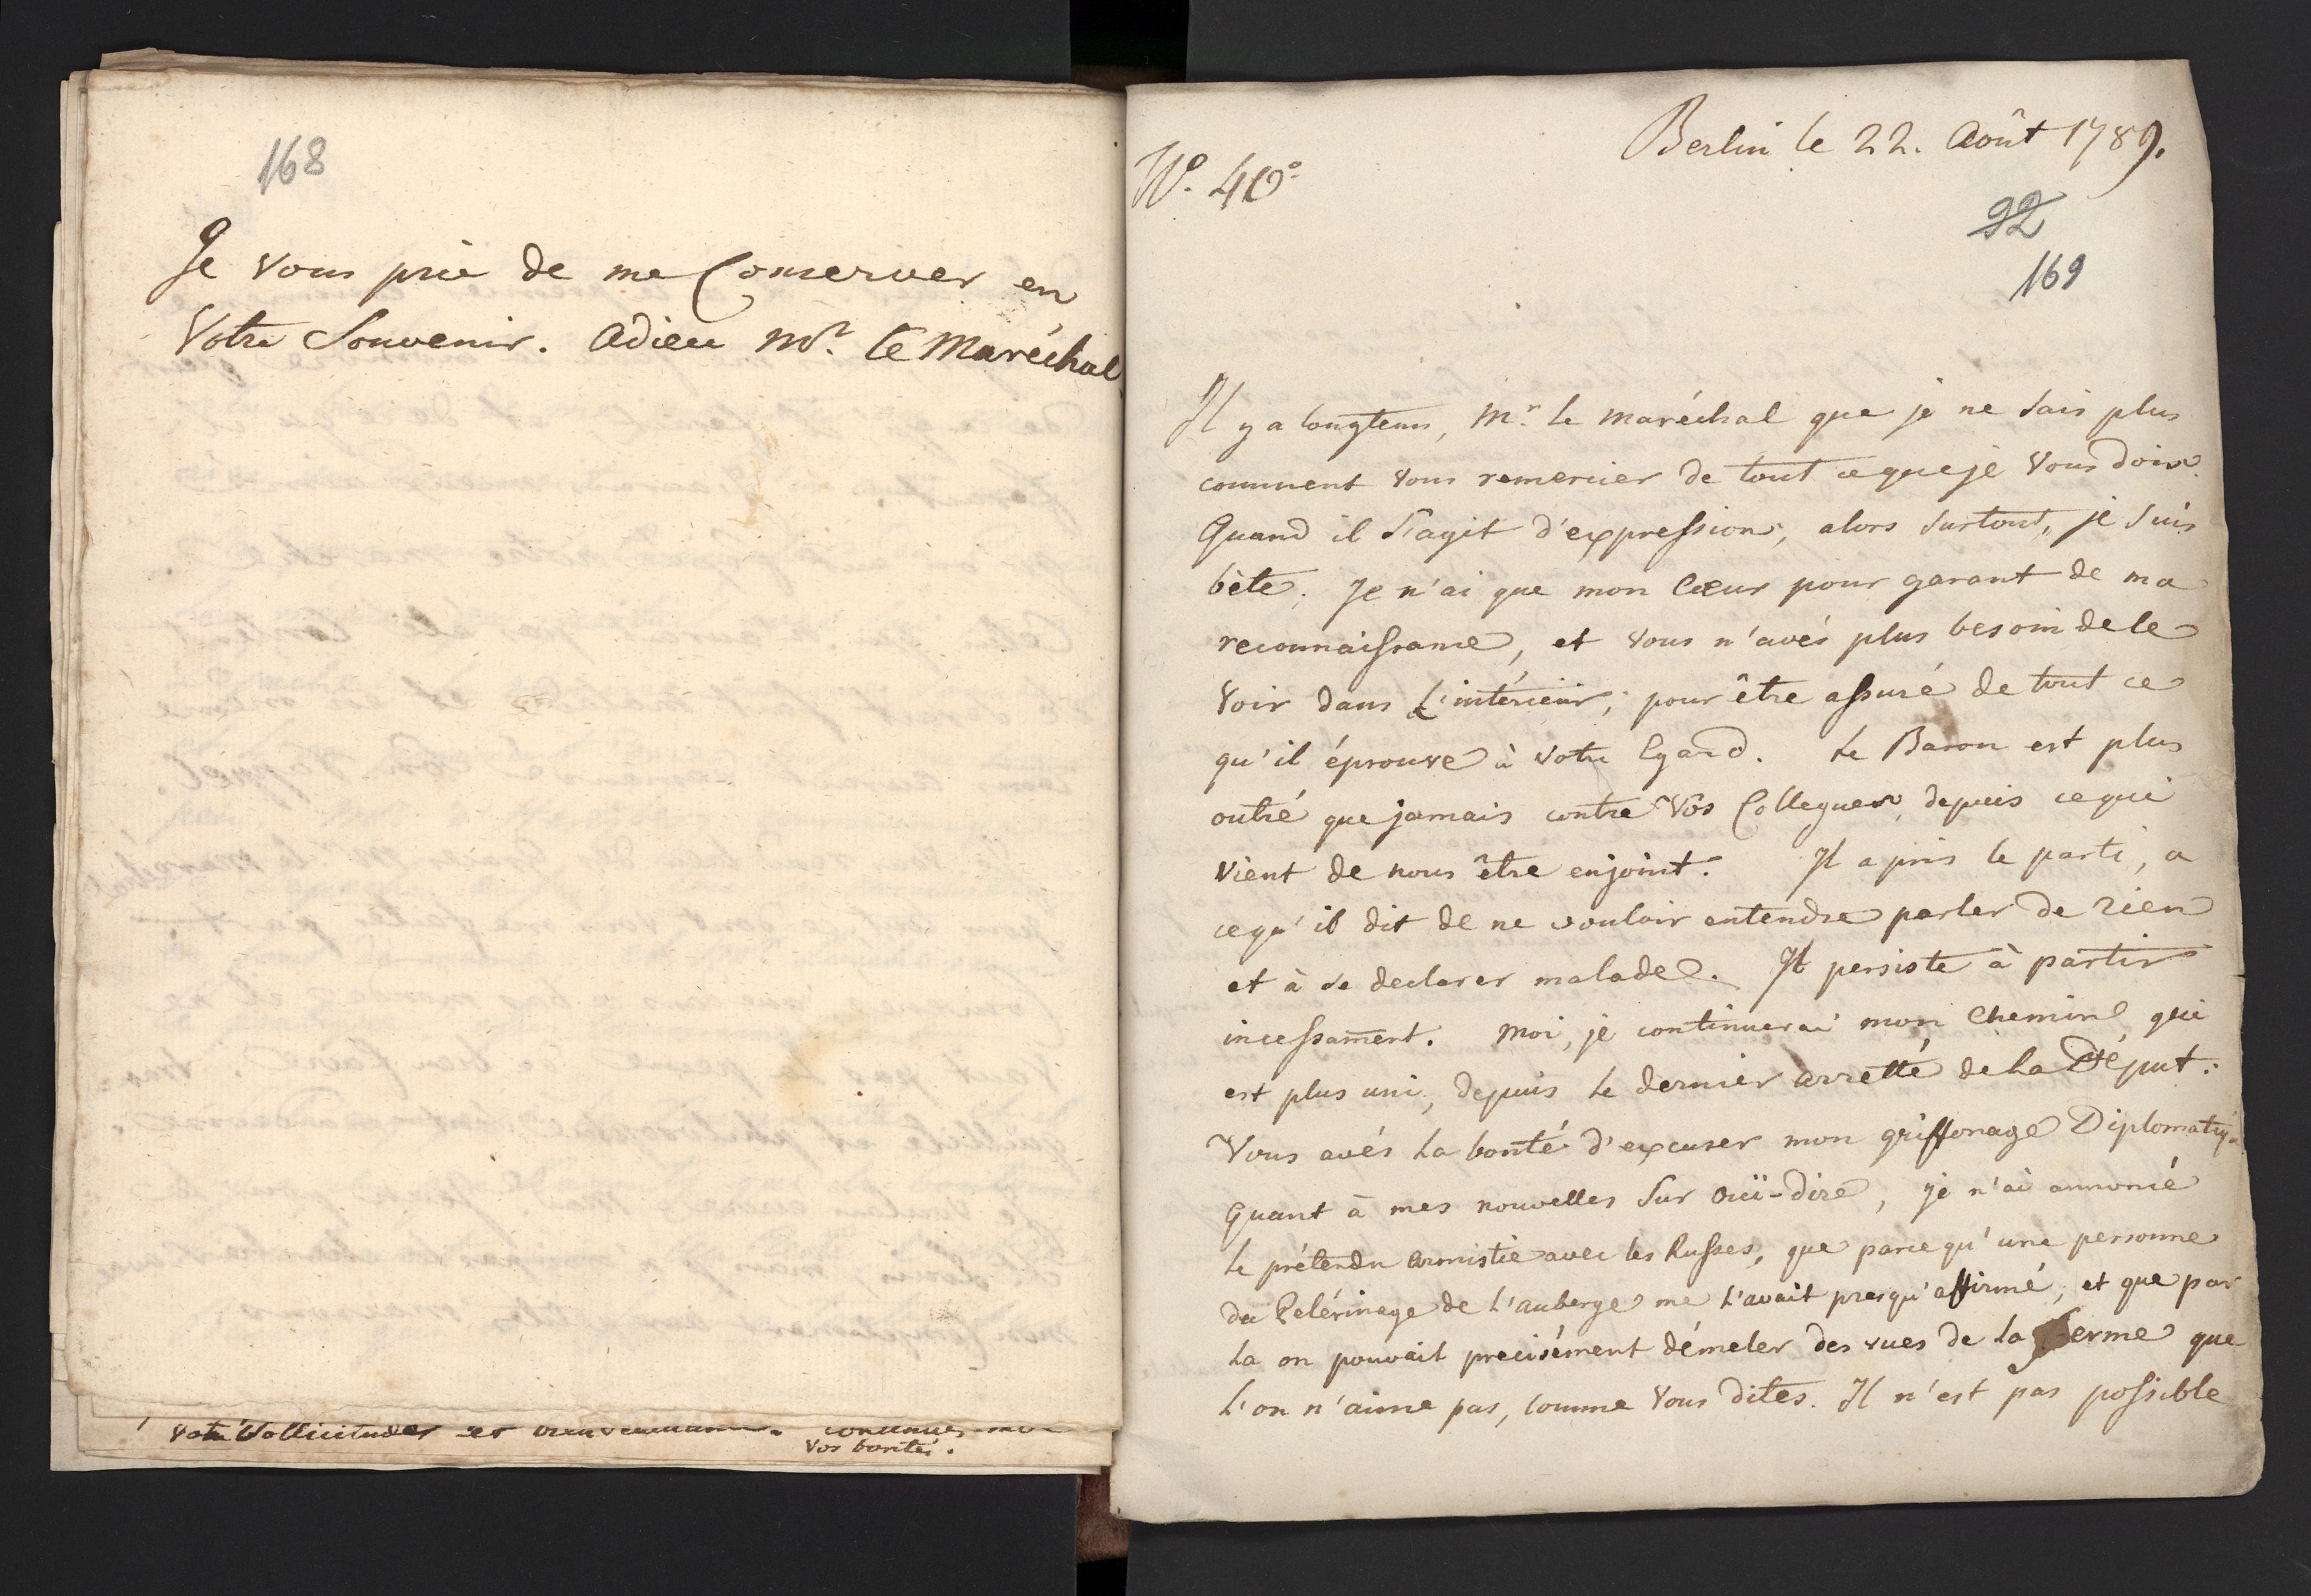 168
Je vous prie de me Conserver en
Votre Souvenir. Adieu Mr. le Maréchal
Votre Sollicitudes et
Vos bontés.
Berlin le 22. Août 1789.
No. 40.
92
169
Il y a longtems, Mr. le Maréchal que je ne sais plus
comment vous remercier de tout ce que je vous dois.
Quand il s'agit d'expressions, alors surtout, je suis
bête. Je n'ai que mon Cœur pour garant de ma
reconnaissance, et vous n'avés plus besoin de le
voir dans l'intérieur, pour être assuré de tout ce
qu'il éprouve à votre Egard. Le Baron est plus
outré que jamais contre Vos Collegues, depuis ce qui
vient de nous être enjoint. Il a pris le parti, a
ce qu'il dit de ne vouloir entendre parler de rien
et à se declarer malade. Il persiste à partir
incessament. Moi, je continuerai mon Chemin, qui
est plus uni, depuis le dernier arretté de la Déput:
Vous avés la bonté d'excuser mon griffonage Diplomatiq
Quant à mes nouvelles sur ouï-dire, je n'ai annoncé
le prétendu armistie avec les Russes, que parce qu'une personne
du Pelérinage de l'auberge me l'avait presqu'affirmé, et que par
la on pouvait precisément démeler des vues de la ferme que
l'on n'aime pas, comme vous dites. Il n'est pas possible